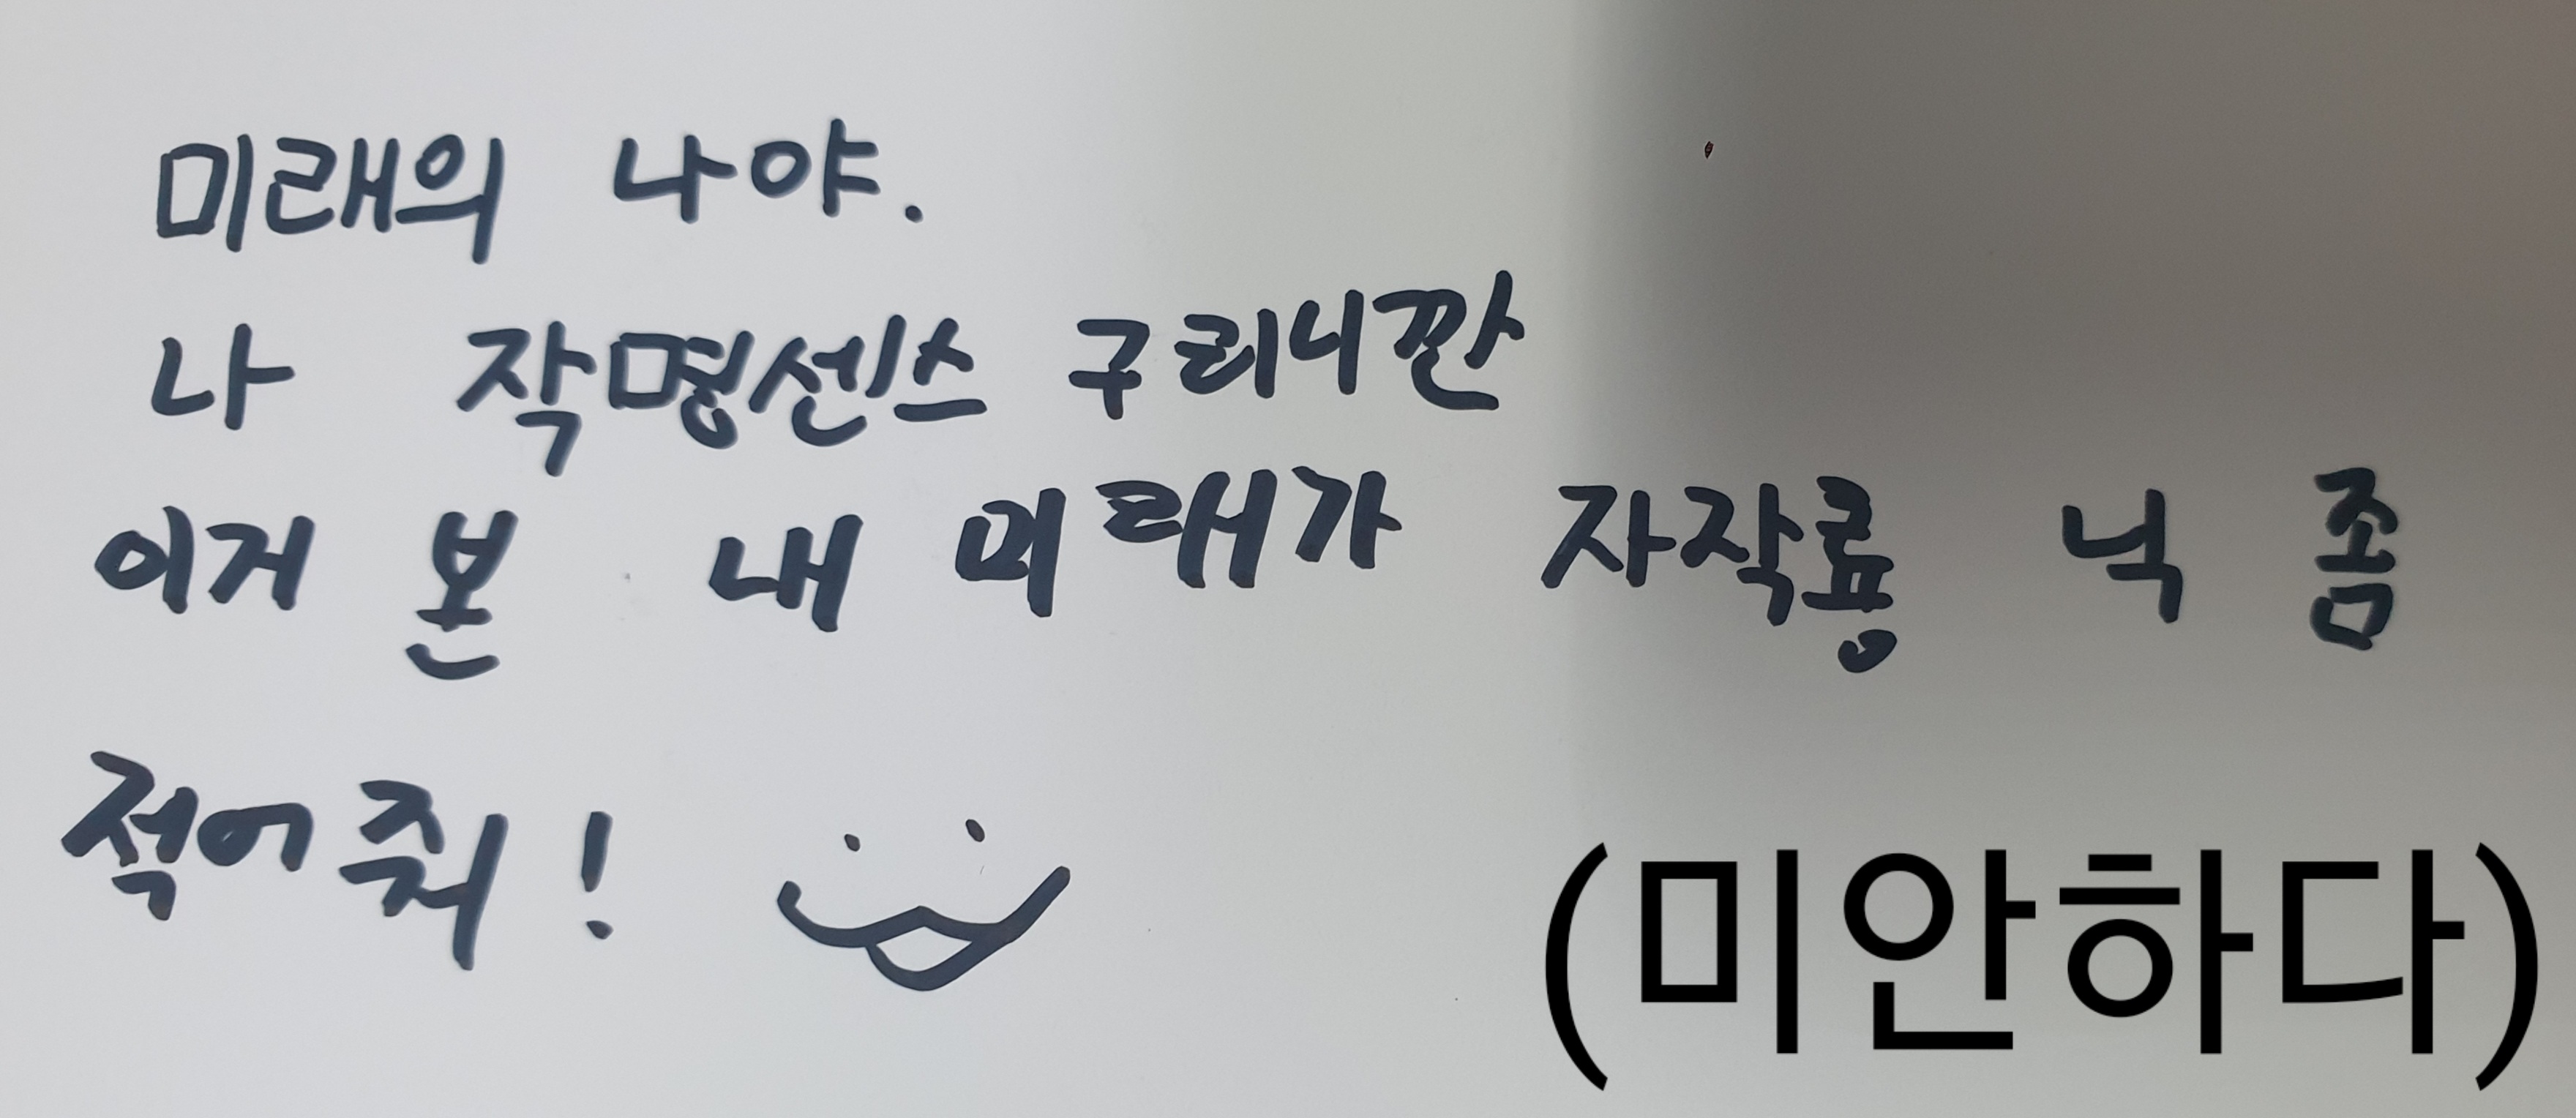 미래의 나야.
나 작명센스 구리니깐
이거 본 내 미래가 자작룡 닉 좀
적어줘!
(미안하다)